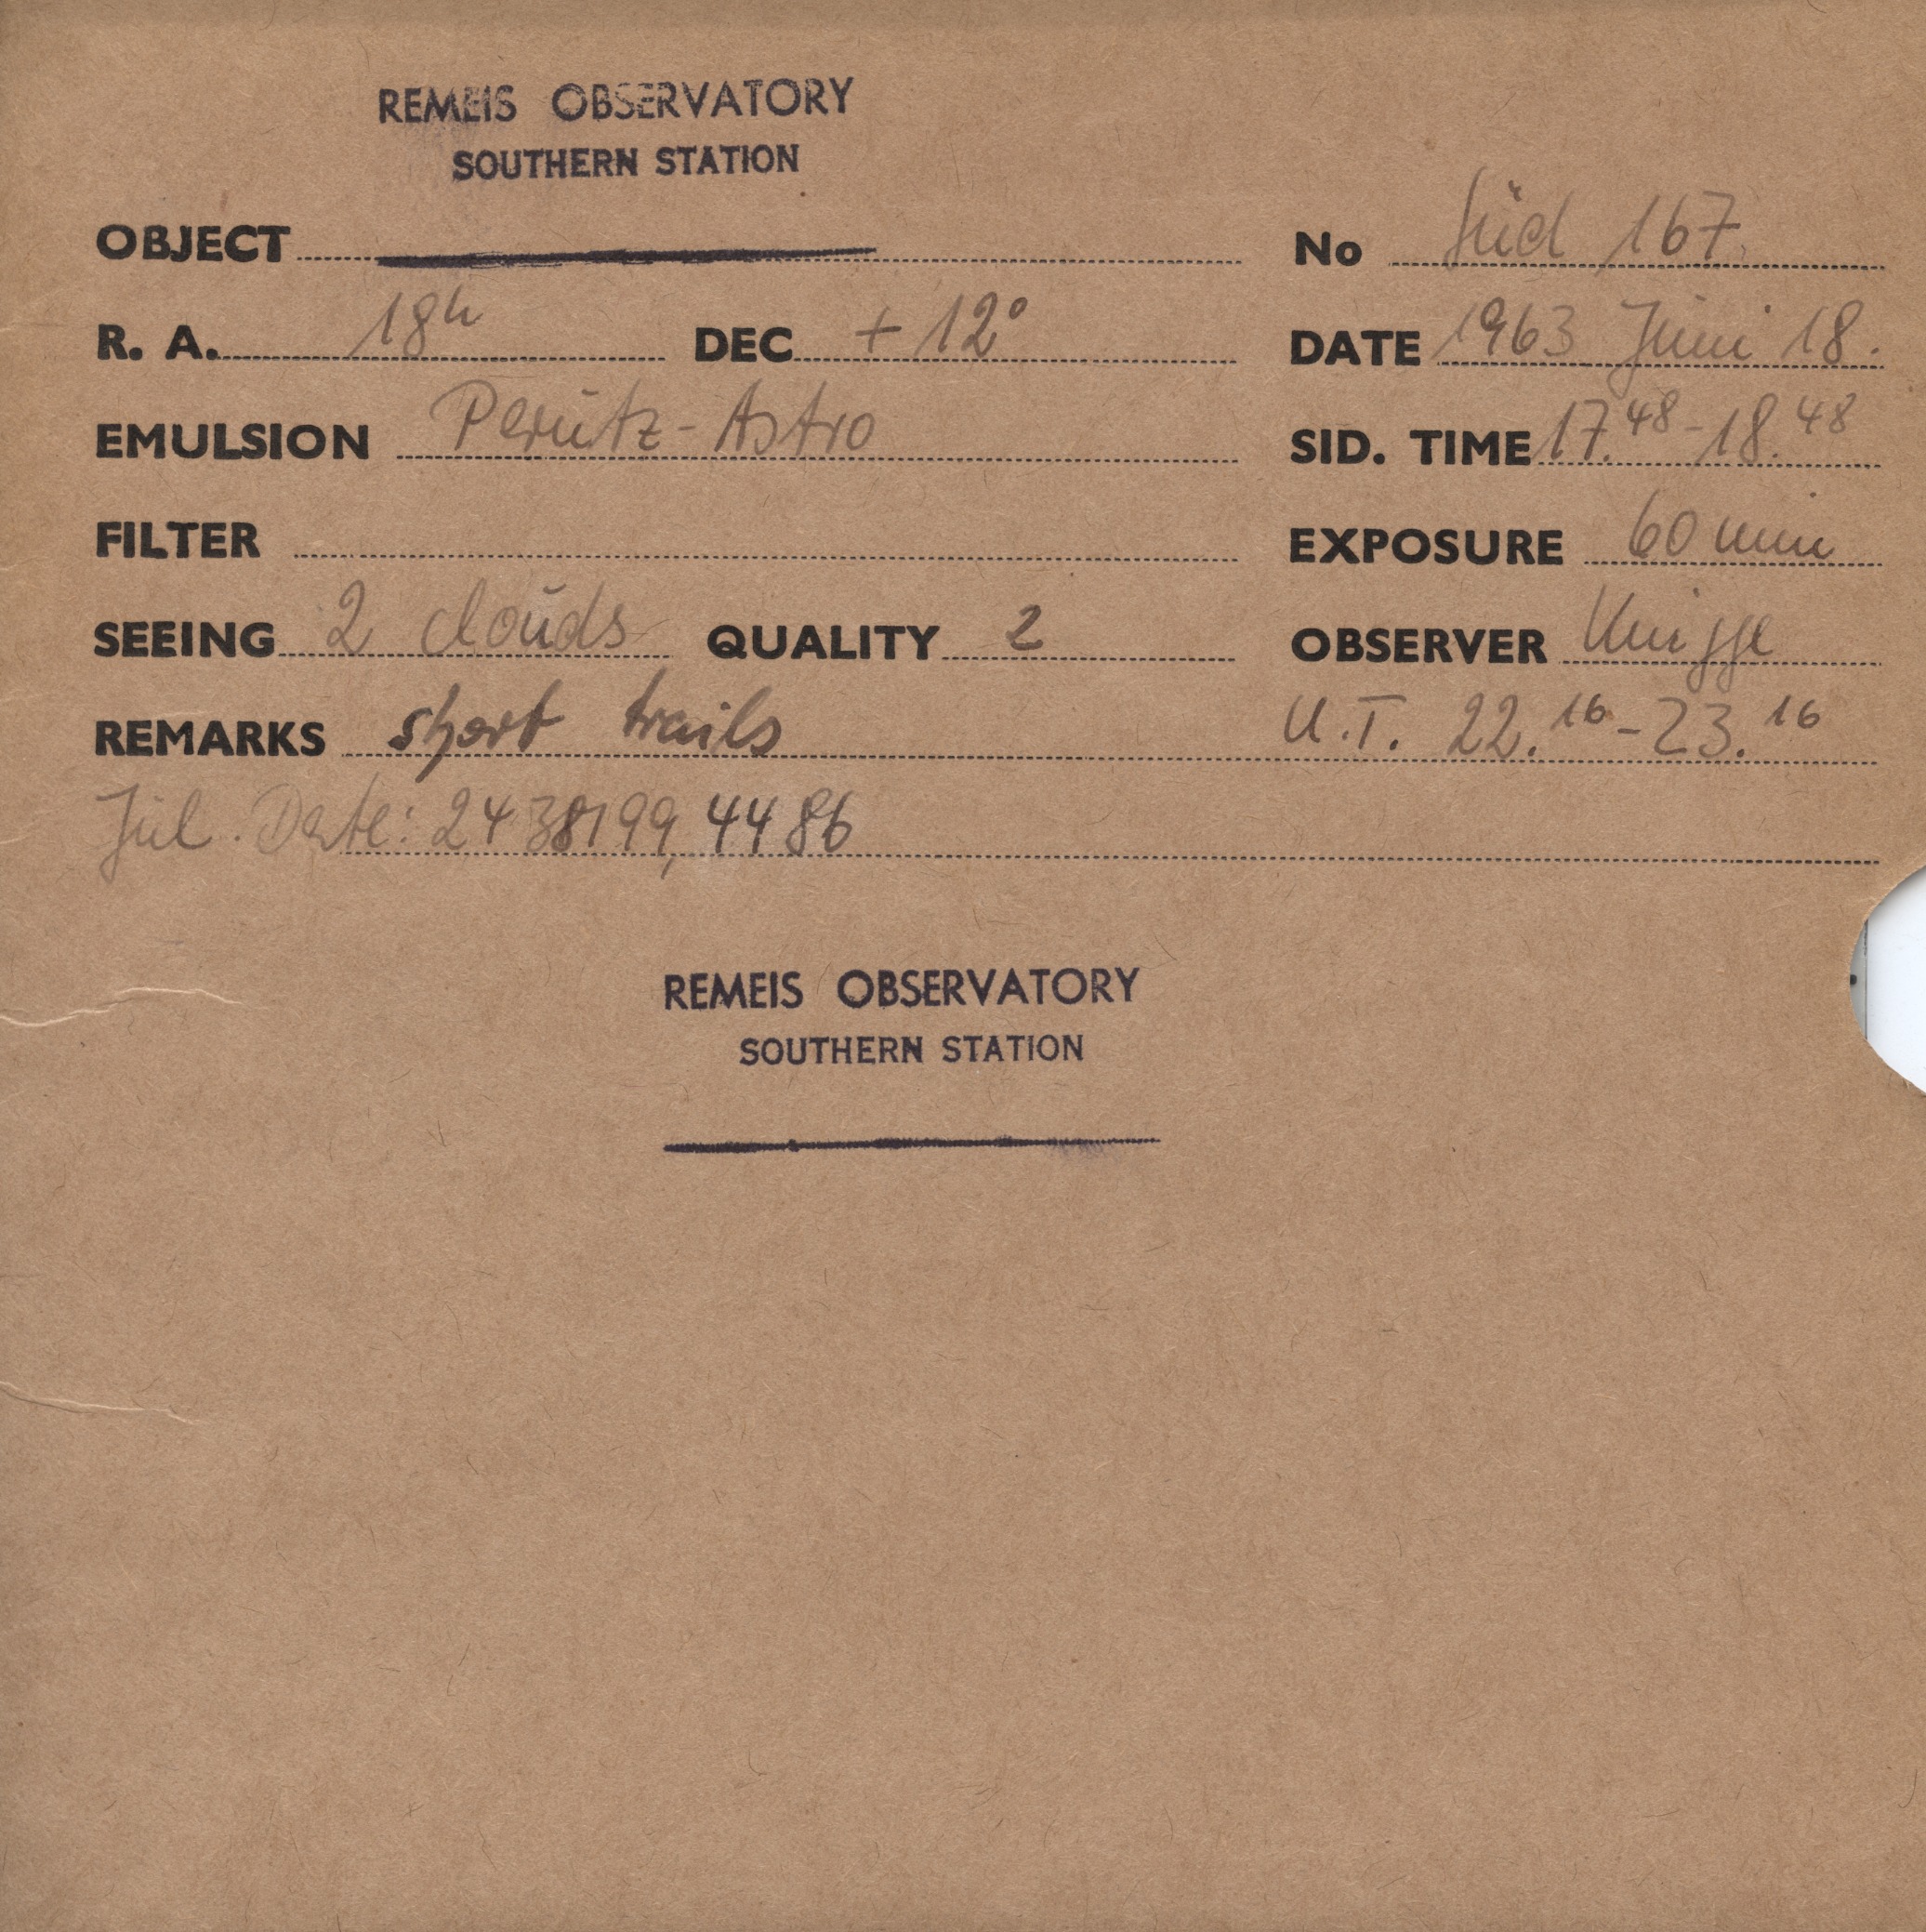 REMEIS OBSERVATORY
SOUTHERN STATION
OBJECT No Süd 167
R. A. 18h DEC + 12° DATE 1963 Juni 18.
EMULSION Perutz-Astro SID. TIME 17.48-18.48
FILTER EXPOSURE 60 min
SEEING 2 clouds QUALITY 2 OBSERVER Knigge
REMARKS short trails U.T. 22.16-23.16
Jul. Date: 2438199,4486
REMEIS OBSERVATORY
SOUTHERN STATION